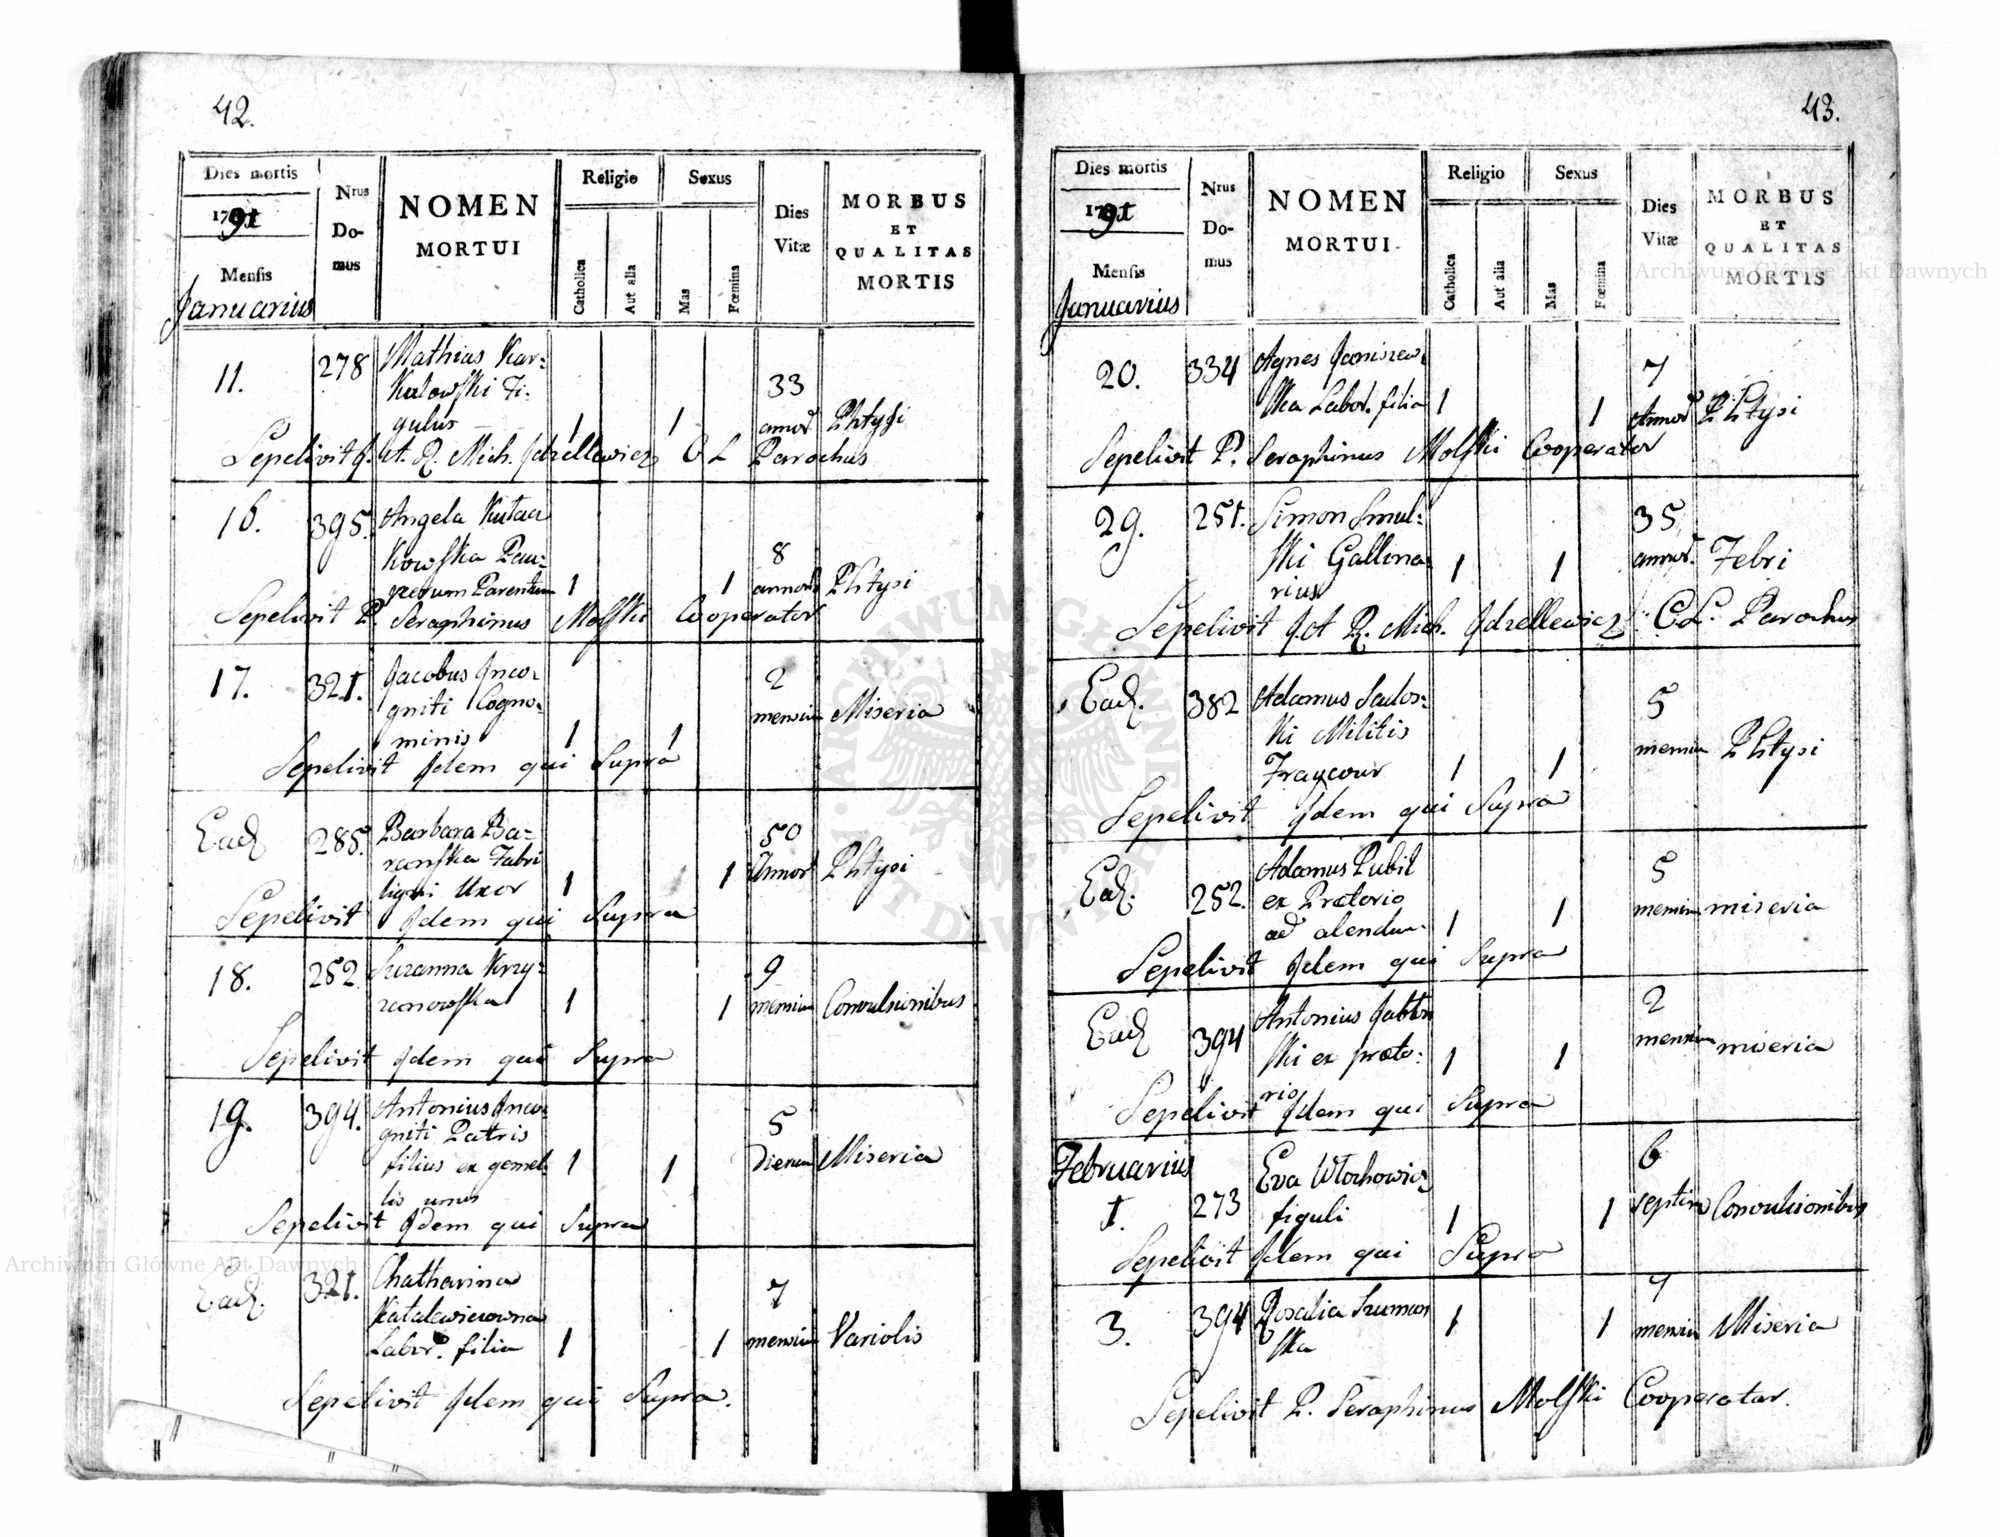 42.
Dies mortis
1791
Mensis
Januarius
Nrus
Do-
mus
NOMEN
MORTUI
Religio
Catholica
Aut alia
Sexus
Mas
Fœmina
Dies
Vitæ
MORBUS
ET
QUALITAS
MORTIS
11. 278 Mathias Kar-
Fi-
gulus 1 1 33 annor Phtysi
Sepelivit J. A. R. Mich. Idzellewicz C L Parochus
16. 395. Angela
kowska Pau-
perum Parentum 1 1 8 annor Phtysi
Sepelivit P. Seraphinus Molski Cooperator
17. 321. Jacobus Inco-
gniti Cogno-
minis 1 1 2 mensium Miseria
Sepelivit Idem qui Supra
Ead. 285. Barbara Ba-
ranska Fabri
ligni Uxor 1 1 50 Annor Phtysi
Sepelivit Idem qui Supra
18. 252 Suzanna Krzy-
zanowska 1 1 9 mensium Convulsionibus
Sepelivit Idem qui Supra
19. 394. Antonius Inco-
gniti Patris
filius ex gemel-
lis unus 1 1 5 dierum Miseria
Sepelivit Idem qui Supra
Ead. 321. Chatharina
Labor. filia 1 1 7 mensium Variolis
Sepelivit Idem qui Supra.
43.
Dies mortis
1791
Mensis
Januarius
Nrus
Do-
mus
NOMEN
MORTUI
Religio
Catholica
Aut alia
Sexus
Mas
Fœmina
Dies
Vitæ
MORBUS
ET
QUALITAS
MORTIS
20. 334 Agnes Janiszew-
ska Labor. filia 1 1 7 Annor Phtysi
Sepelivit P. Seraphinus Molski Cooperator
29. 251. Simon Smul-
ski Gallina-
rius 1 1 35 annor. Febri
Sepelivit J. A R. Mich. Idzellewicz C L. Parochus
Ead. 382 Adamus Sados-
ki Militis
1 1 5 mensium Phtysi
Sepelivit Idem qui Supra
Ead. 252. Adamus
ex Prætorio
ad alendum 1 1 5 mensium miseria
Sepelivit Idem qui Supra
Ead 394 Antonius Jablon
ski ex præto-
rio 1 1 2 mensium miseria
Sepelivit Idem qui Supra
Februarius
1. 273 Eva Wlochowicz
figuli 1 1 6 septim Convulsionibus
Sepelivit Idem qui Supra
3. 394 Rosalia Szuman
ska 1 1 7 mensium Miseria
Sepelivit P. Seraphinus Molski Cooperator.
Archiwum Główne Akt Dawnych
Archiwum Główne Akt Dawnych
ARCHIWUM GŁÓWNE AKT DAWNYCH